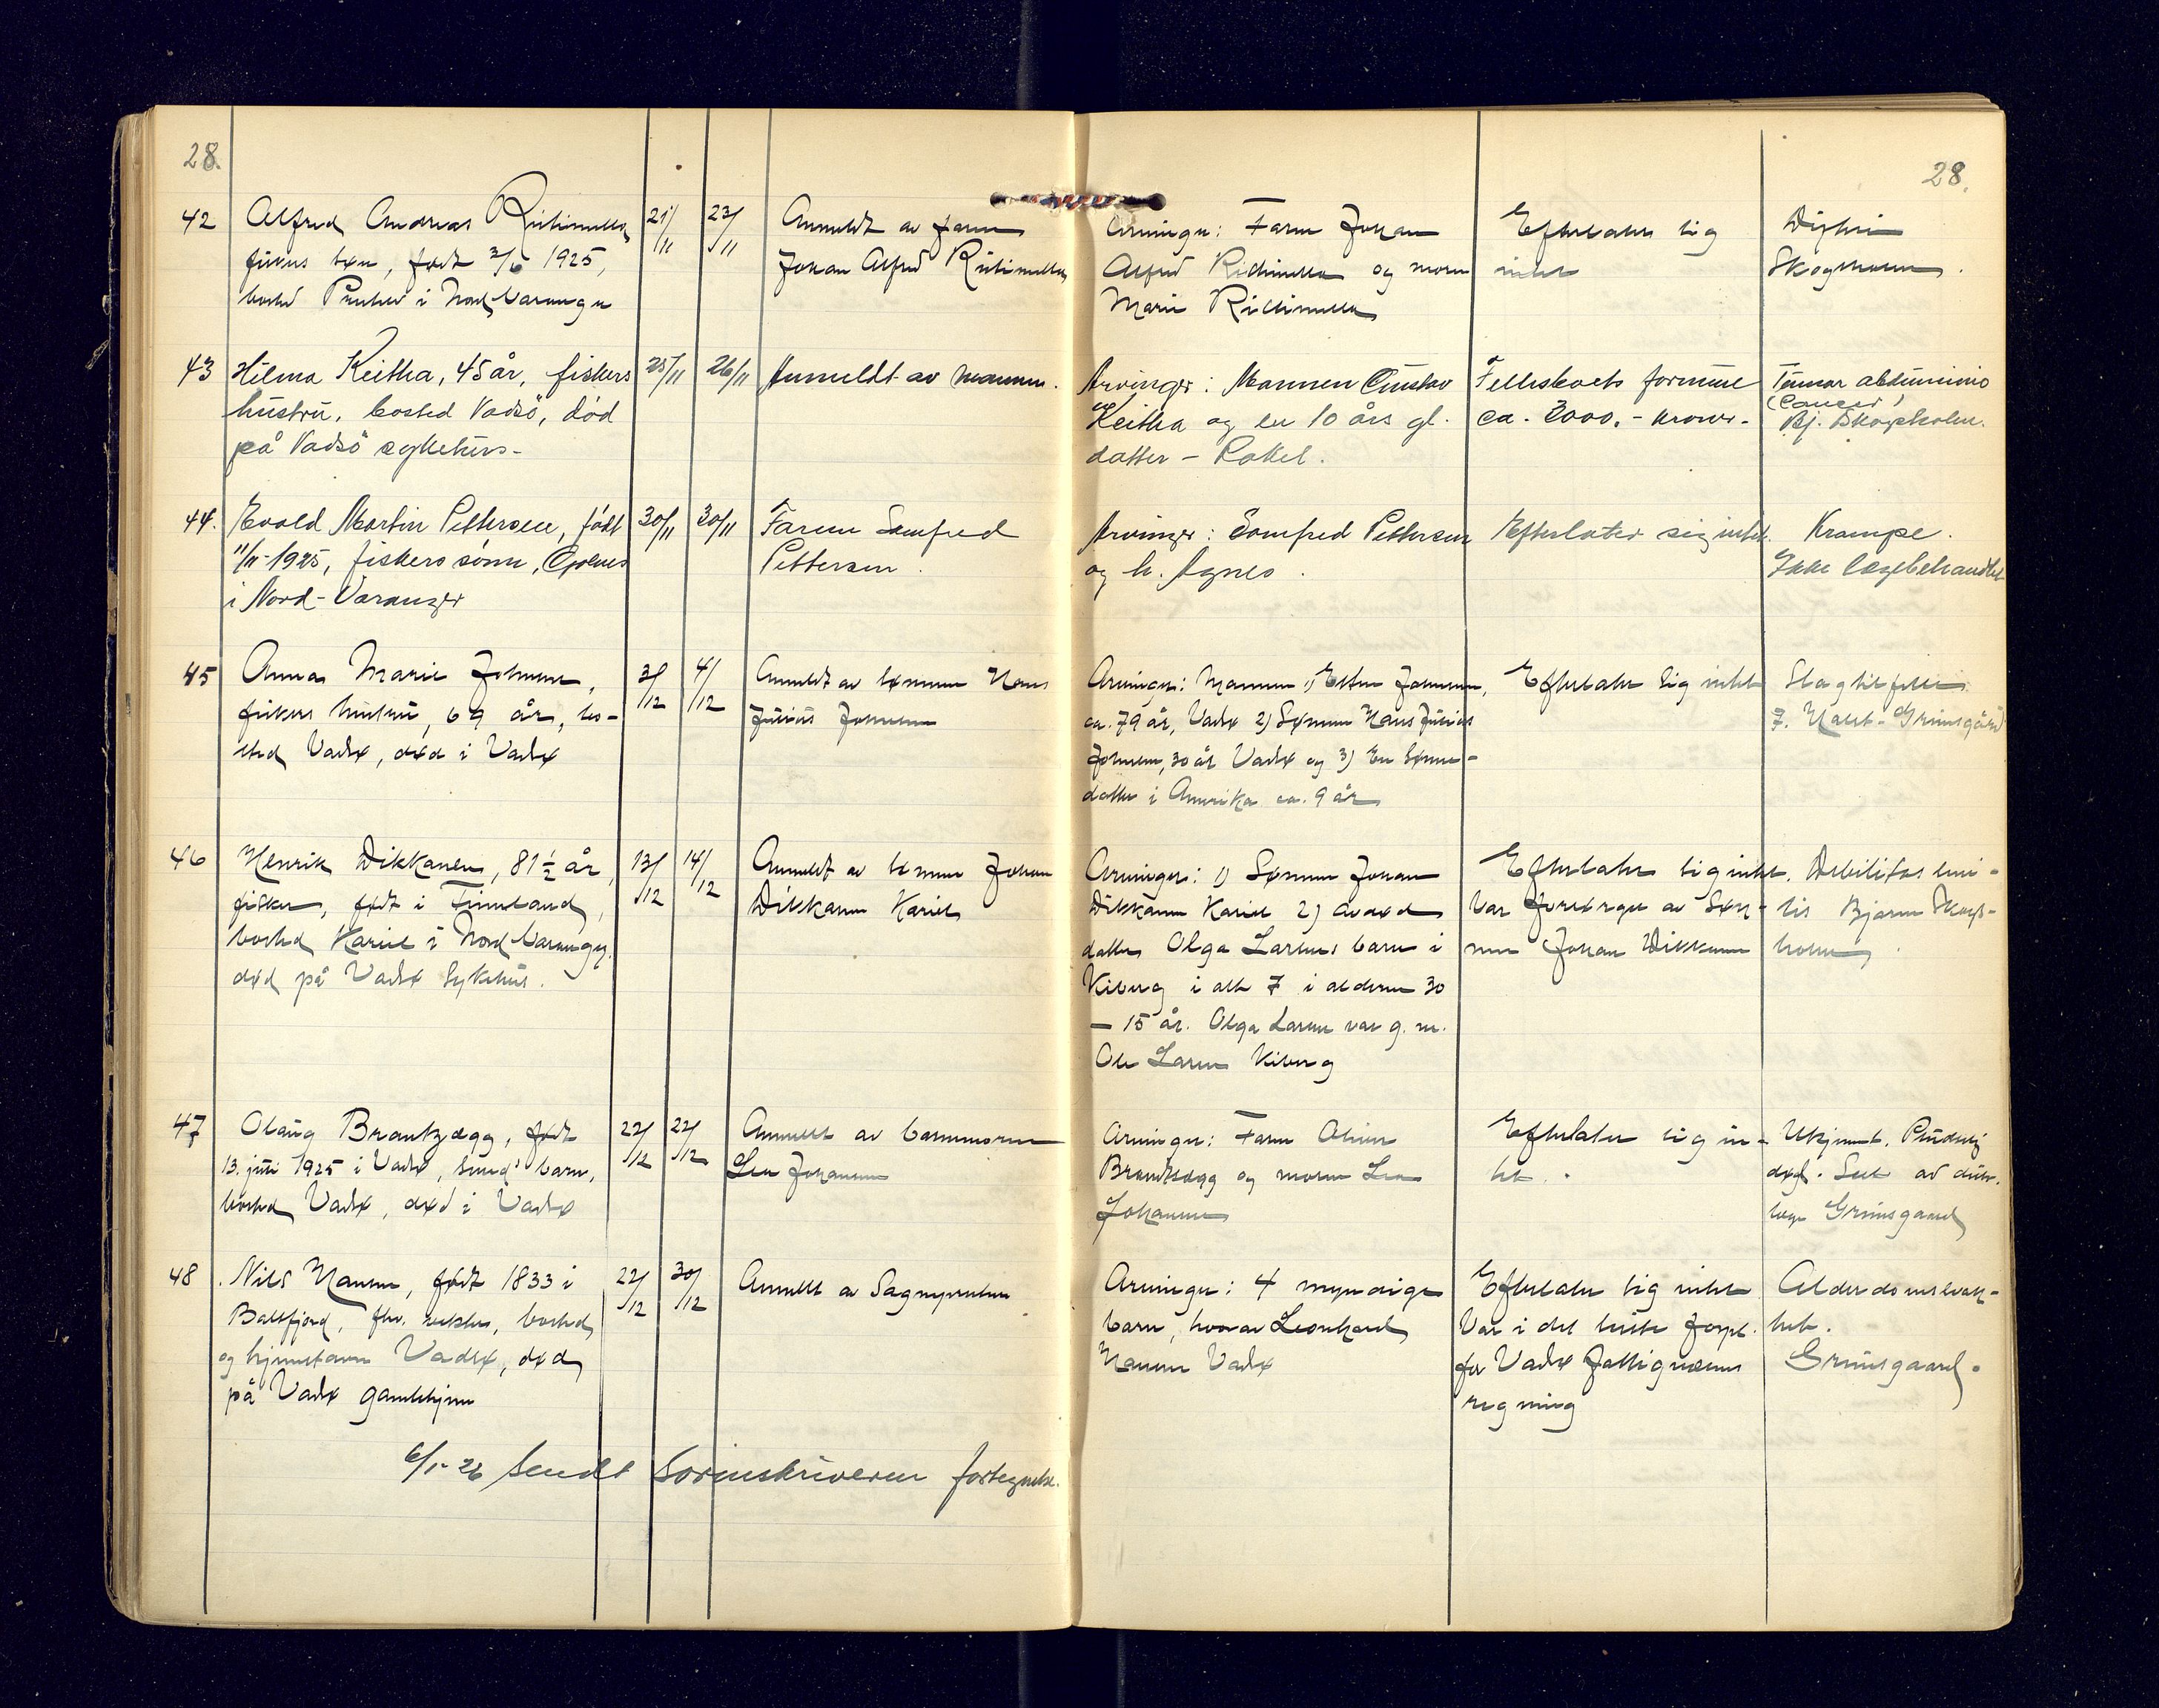 28.
28.
42
Alfred Andreas Ritimella
fiskers søn, født 2/6 1925,
bosted i Nord Varanger
21/11
23/11
Anmeldt av faren
Johan Alfred Ritimella
Arvinger: Faren Johan
Alfred Ritimella og moren
Marie Ritimella
Efterlater sig
intet
Difteri
Skogsholm.
43
Hilma Keitha, 45 år, fiskers
hustru, bosted Vadsö, död
på Vadsö sykehus.
25/11
26/11
Anmeldt av mannen.
Arvinger: Mannen Gustav
Keitha og en 10 års gl.
datter - Rakel.
Felleskoets formue
ca. 3000.- kroner.
Tumor abdominis
(Cancer)
Bj. Skogsholm.
44.
Evald Martin Pettersen, født
11/11-1925, fiskers sönn, Golnes
i Nord-Varanger
30/11
30/11
Faren Samfred
Pettersen.
Arvinger: Samfred Pettersen
og h. Agnes.
Efterlater sig intet.
Krampe.
Ikke lægebehandlet
45
Anna Marie Johnsen,
fiskers hustru, 69 år, bo-
sted Vadsø, død i Vadsø
3/12
4/12
Anmeldt av sønnen Hans
Julius Johnsen
Arvinger: Mannen 1) Esten Johnsen,
ca. 79 år, Vadsø 2) Sønnen Hans Julius
Johnsen, 30 år Vadsø og 3) En sønne-
datter i Amerika ca. 9 år
Efterlater sig intet
Slagtilfelle
F. Kalst-Grimsgård
46
Henrik Dikkanen, 81 1/2 år,
fisker, født i Finnland,
bosted Kariel i Nord Varanger.
død på Vadsø Sykehus.
13/12
14/12
Anmeldt av sønnen Johan
Dikkanen Kariel
Arvinger: 1) Sønnen Johan
Dikkanen Kariel 2) avdød
datter Olga Larsens barn i
Kiberg i alt 7 i alderen 30
- 15 år. Olga Larsen var g. m.
Ole Larsen Kiberg
Efterlater sig intet.
Var forsørget av Søn-
nen Johan Dikkanen
Debilitas seni-
lis Bjarne Skogs-
holm.
47
Olaug Brandtzægg, født
13. juni 1925 i Vadsø, smeds barn,
bosted Vadsø, død i Vadsø
22/12
22/12
Anmeldt av barnemoren
Lea Johansen
Arvinger: Faren Oliver
Brandtzægg og moren Lea
Johansen
Efterlater sig in-
tet.
Ukjent. Pludselig
død. Sett av distr.
læge Grimsgaard
48
Nils Hansen, født 1833 i
Balsfjord, fhv. bosted
og hjemstavn Vadsø, død
på Vadsø gamlehjem
22/12
30/12
Anmeldt av Sognepresten
Arvinger: 4 myndige
barn, hvorav Leonhard
Hansen Vadsø
Efterlater sig intet
Var i det siste forpl.
for Vadsø fattigvæsens
regning
Alderdomssvak-
het.
Grimsgaard.
6/1-26 Sendt Sorenskriveren fortegnelse.